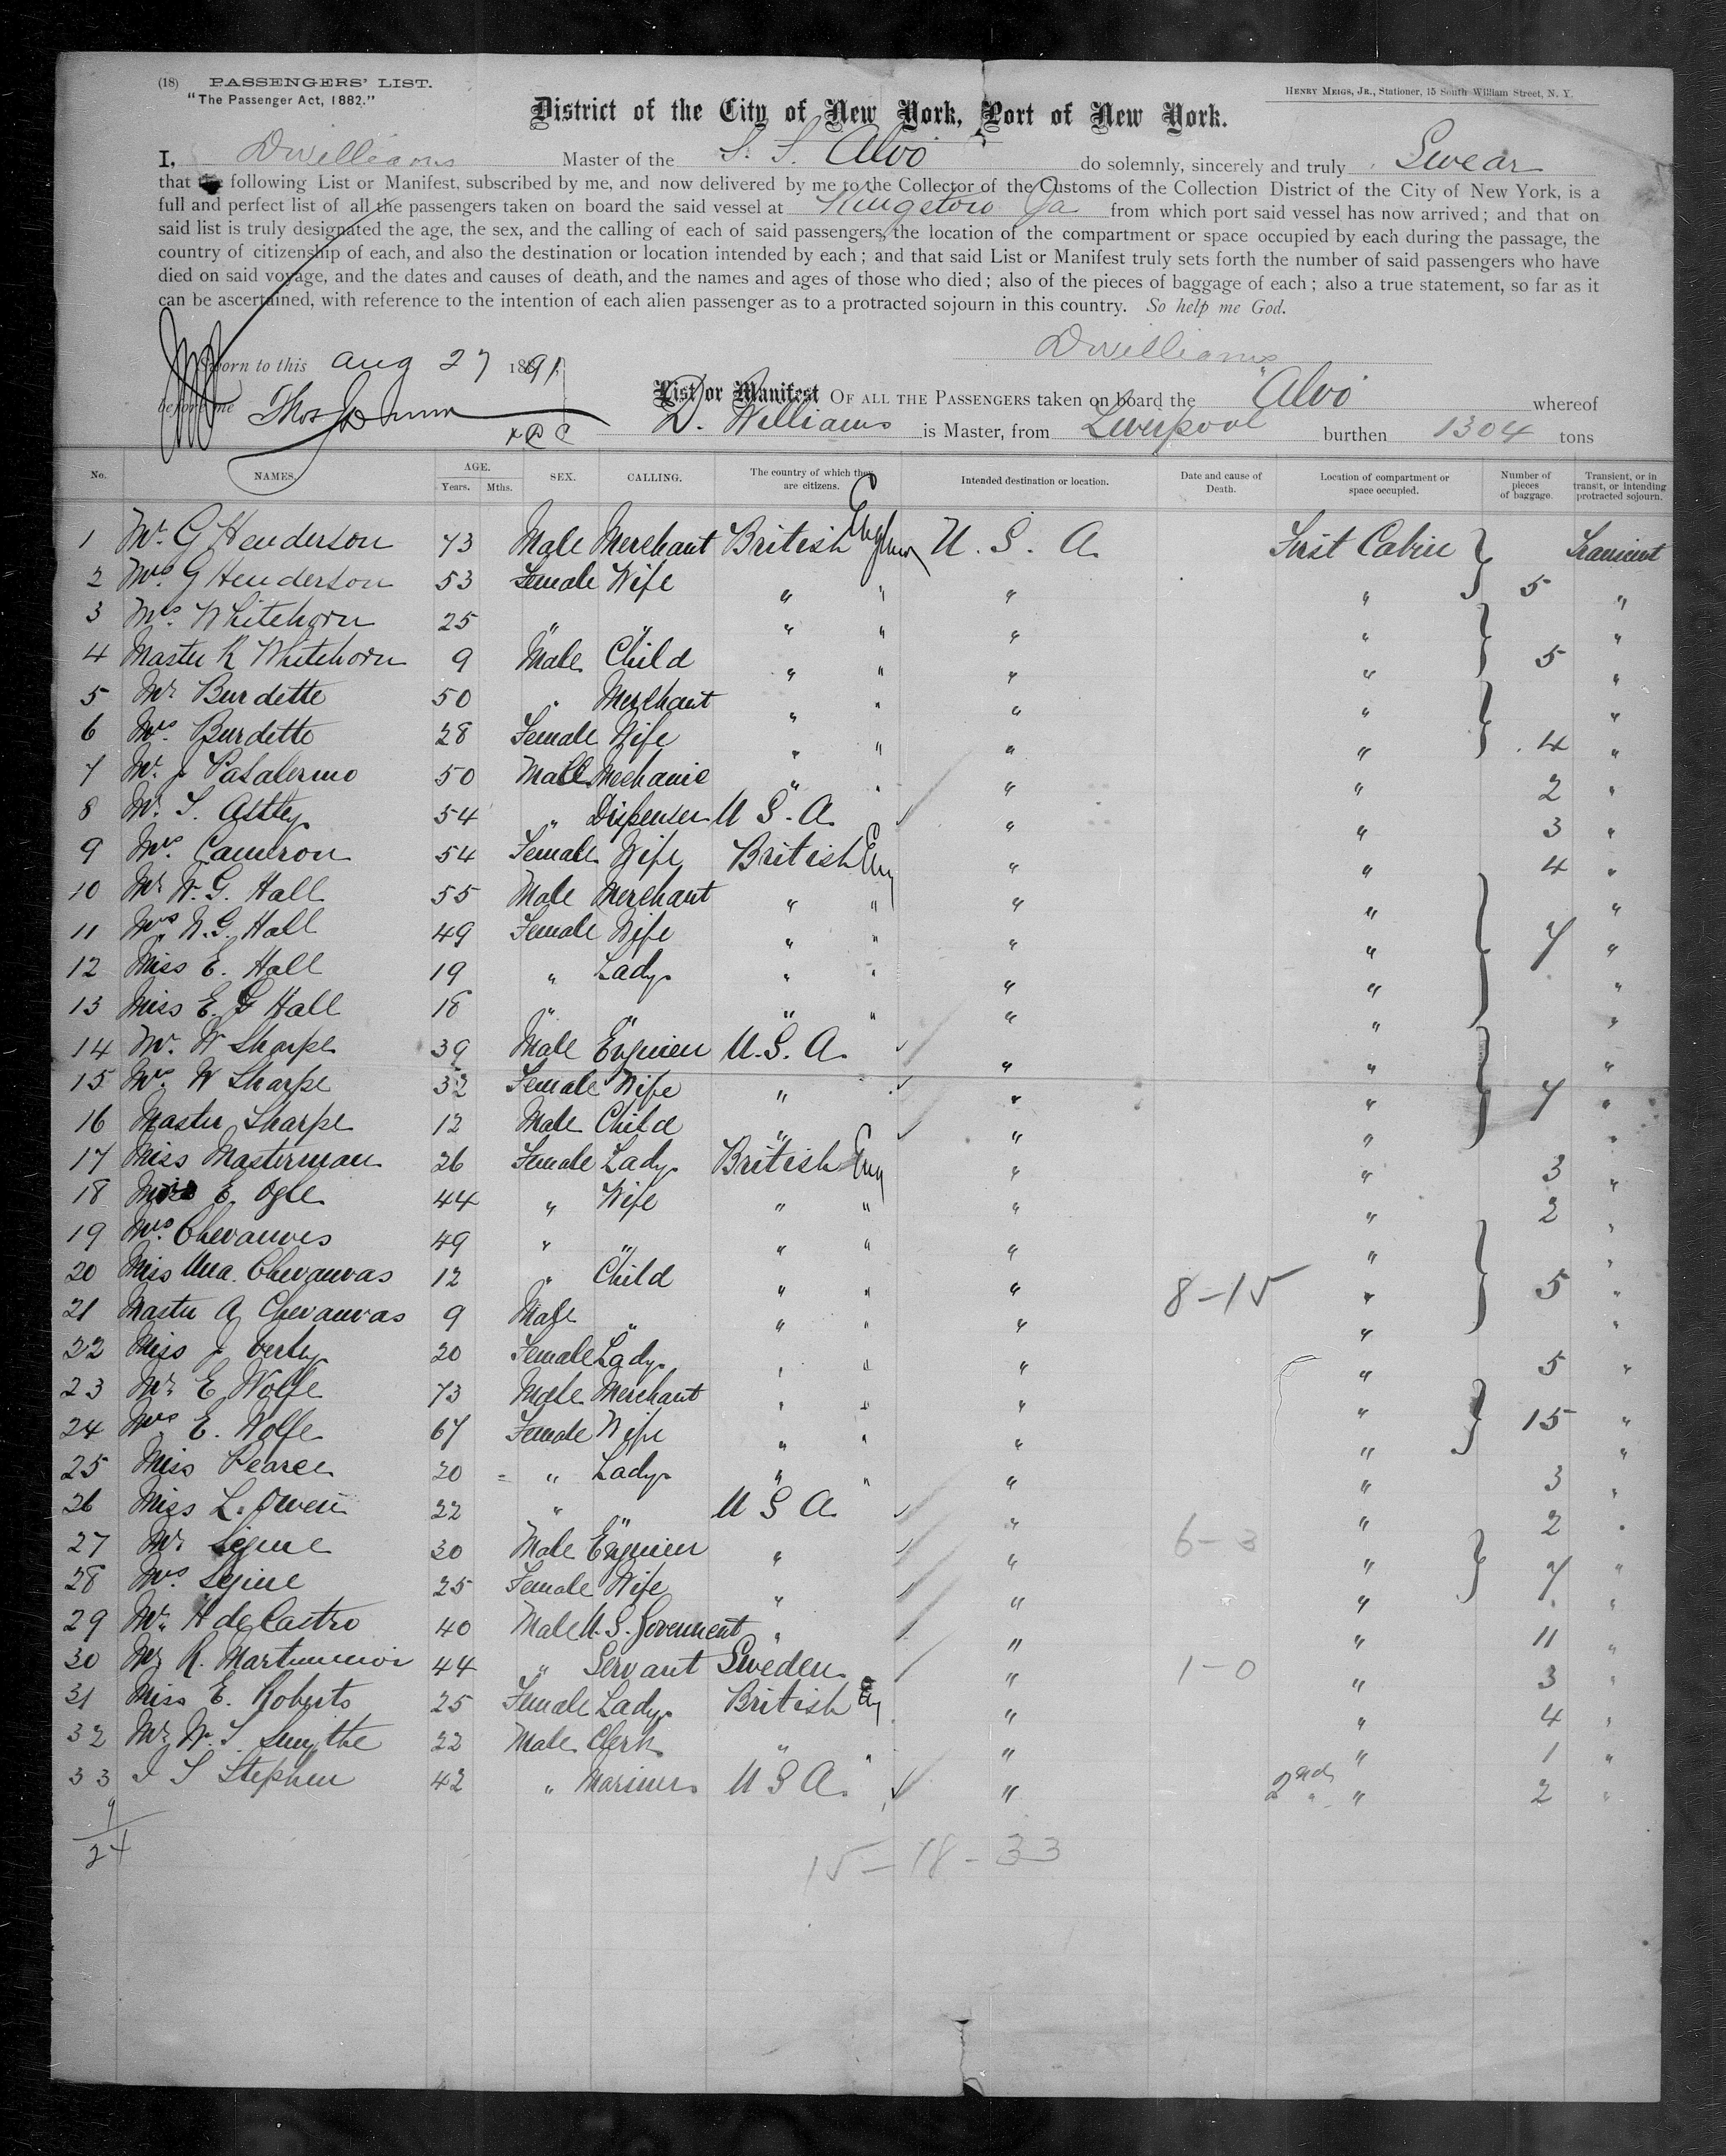 (18) PASSENGERS' LIST.
"The Passenger Act, 1882."
HENRY MEIGS, JR., Stationer, 15 South William Street, N. Y.
District of the City of New York, Port of New York.
I, D Williams Master of the S. S. Alvo do solemnly, sincerely and truly Swear
that the following List or Manifest, subscribed by me, and now delivered by me to the Collector of the Customs of the Collection District of the City of New York, is a
full and perfect list of all the passengers taken on board the said vessel at Kingston Ja from which port said vessel has now arrived; and that on
said list is truly designated the age, the sex, and the calling of each of said passengers, the location of the compartment or space occupied by each during the passage, the
country of citizenship of each, and also the destination or location intended by each; and that said List or Manifest truly sets forth the number of said passengers who have
died on said voyage, and the dates and causes of death, and the names and ages of those who died; also of the pieces of baggage of each; also a true statement, so far as it
can be ascertained, with reference to the intention of each alien passenger as to a protracted sojourn in this country. So help me God.
D Williams
Sworn to this Aug 27 1891
before me Thos
List or Manifest OF ALL THE PASSENGERS taken on board the "Alvo" whereof
D. Williams is Master, from Liverpool burthen 1304 tons
No. NAMES. AGE. Years. Mths. SEX. CALLING. The country of which they are citizens. Intended destination or location. Date and cause of Death. Location of compartment or space occupied. Number of pieces of baggage. Transient, or in transit, or intending protracted sojourn.
1 Mr. G Henderson 73 Male Merchant British U. S. A. First Cabin Transient
2 Mrs G Henderson 53 Female Wife " " " " 5 "
3 Mrs. Whitehorn 25 " " " " " " "
4 Master R Whitehorn 9 Male Child " " " " 5 "
5 Mr Burdette 50 " Merchant " " " " "
6 Mrs. Burdette 28 Female Wife " " " " 4 "
7 Mr. J Pasalermo 50 Male Mechanic " " " " 2 "
8 Mr. S. Astley 54 " Dispenser U S. A. " " 3 "
9 Mrs. Cameron 54 Female Wife British Eng " " 4 "
10 Mr W. G. Hall 55 Male Merchant " " " " "
11 Mrs W. G. Hall 49 Female Wife " " " " 7 "
12 Miss E. Hall 19 " Lady " " " " "
13 Miss E. G Hall 18 " " " " " " "
14 Mr. W Sharpe 39 Male Engineer U. S. A. " " "
15 Mrs. W Sharpe 32 Female Wife " " " 7 "
16 Master Sharpe 12 Male Child " " " "
17 Miss Masterman 26 Female Lady British Eng " " 3 "
18 Mrs E. Ogle 44 " Wife " " " " 2 "
19 Mrs. Chevannes 49 " " " " " " "
20 Miss Una Chevanvas 12 " Child " " " 8-15 " 5 "
21 Master A Chevanvas 9 Male " " " " " "
22 Miss J Verley 20 Female Lady " " " " 5 "
23 Mr E Wolfe 73 Male Merchant " " " "
24 Mrs E. Wolfe 67 Female Wife " " " " 15 "
25 Miss Pearce 20 " Lady " " " " 3 "
26 Miss L. Owen 22 " " U S A " " 2 "
27 Mr 30 Male Engineer " " 6-3 " "
28 Mrs. 25 Female Wife " " " 7 "
29 Mr. H de Castro 40 Male U. S. Goverment " " " 11 "
30 Mr R. 44 " Servant Sweden " 1-0 " 3 "
31 Miss E. Roberts 25 Female Lady British Eng " " 4 "
32 Mr W. S. Smythe 22 Male Clerk " " " " 1 "
33 I S Stephen 42 " Mariner U S A. " 2nd " " 2 "
9
24
15-18-33